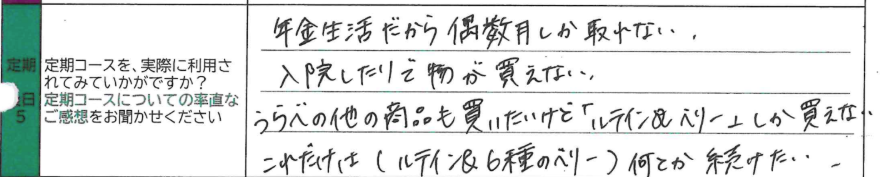 定期 定期コースを、実際に利用さ
れてみていかがですか?
定期コースについての率直な
5 ご感想をお聞かせください
年金生活だから偶数月しか取れない.
入院したりで物が買えない.
うらべの他の商品も買いたいけど「ルテイン&ベリー」しか買えない
これだけは(ルテイン&6種のベリー)何とか続けたい